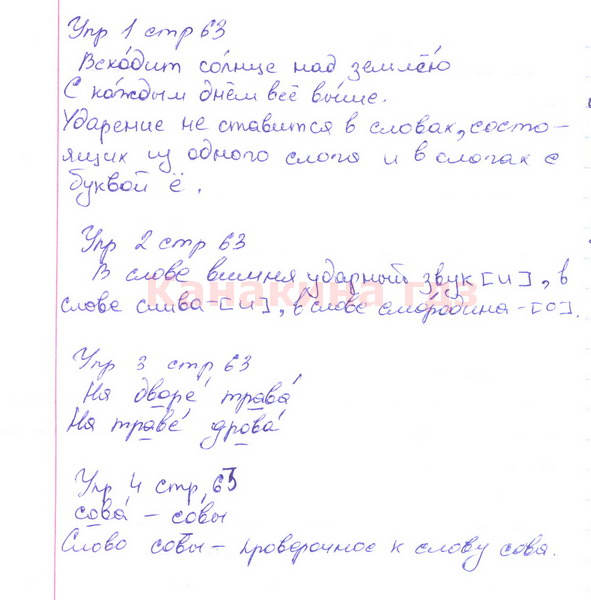 Упр 1 стр 63
Всхо́дит со́лнце над землёю
С ка́ждым днём всё вы́ше.
Ударение не ставится в словах, состо-
ящих из одного слога и в слогах с
буквой ё.
Упр 2 стр 63
В слове вишня ударный звук [и], в
слове слива-[и], в слове сморо́дина-[о].
Канакина гдз
Упр 3 стр 63
На дворе́ трава́
На траве́ дрова́
Упр 4 стр 63
сова́ – со́вы
Слово совы – проверочное к слову сова.